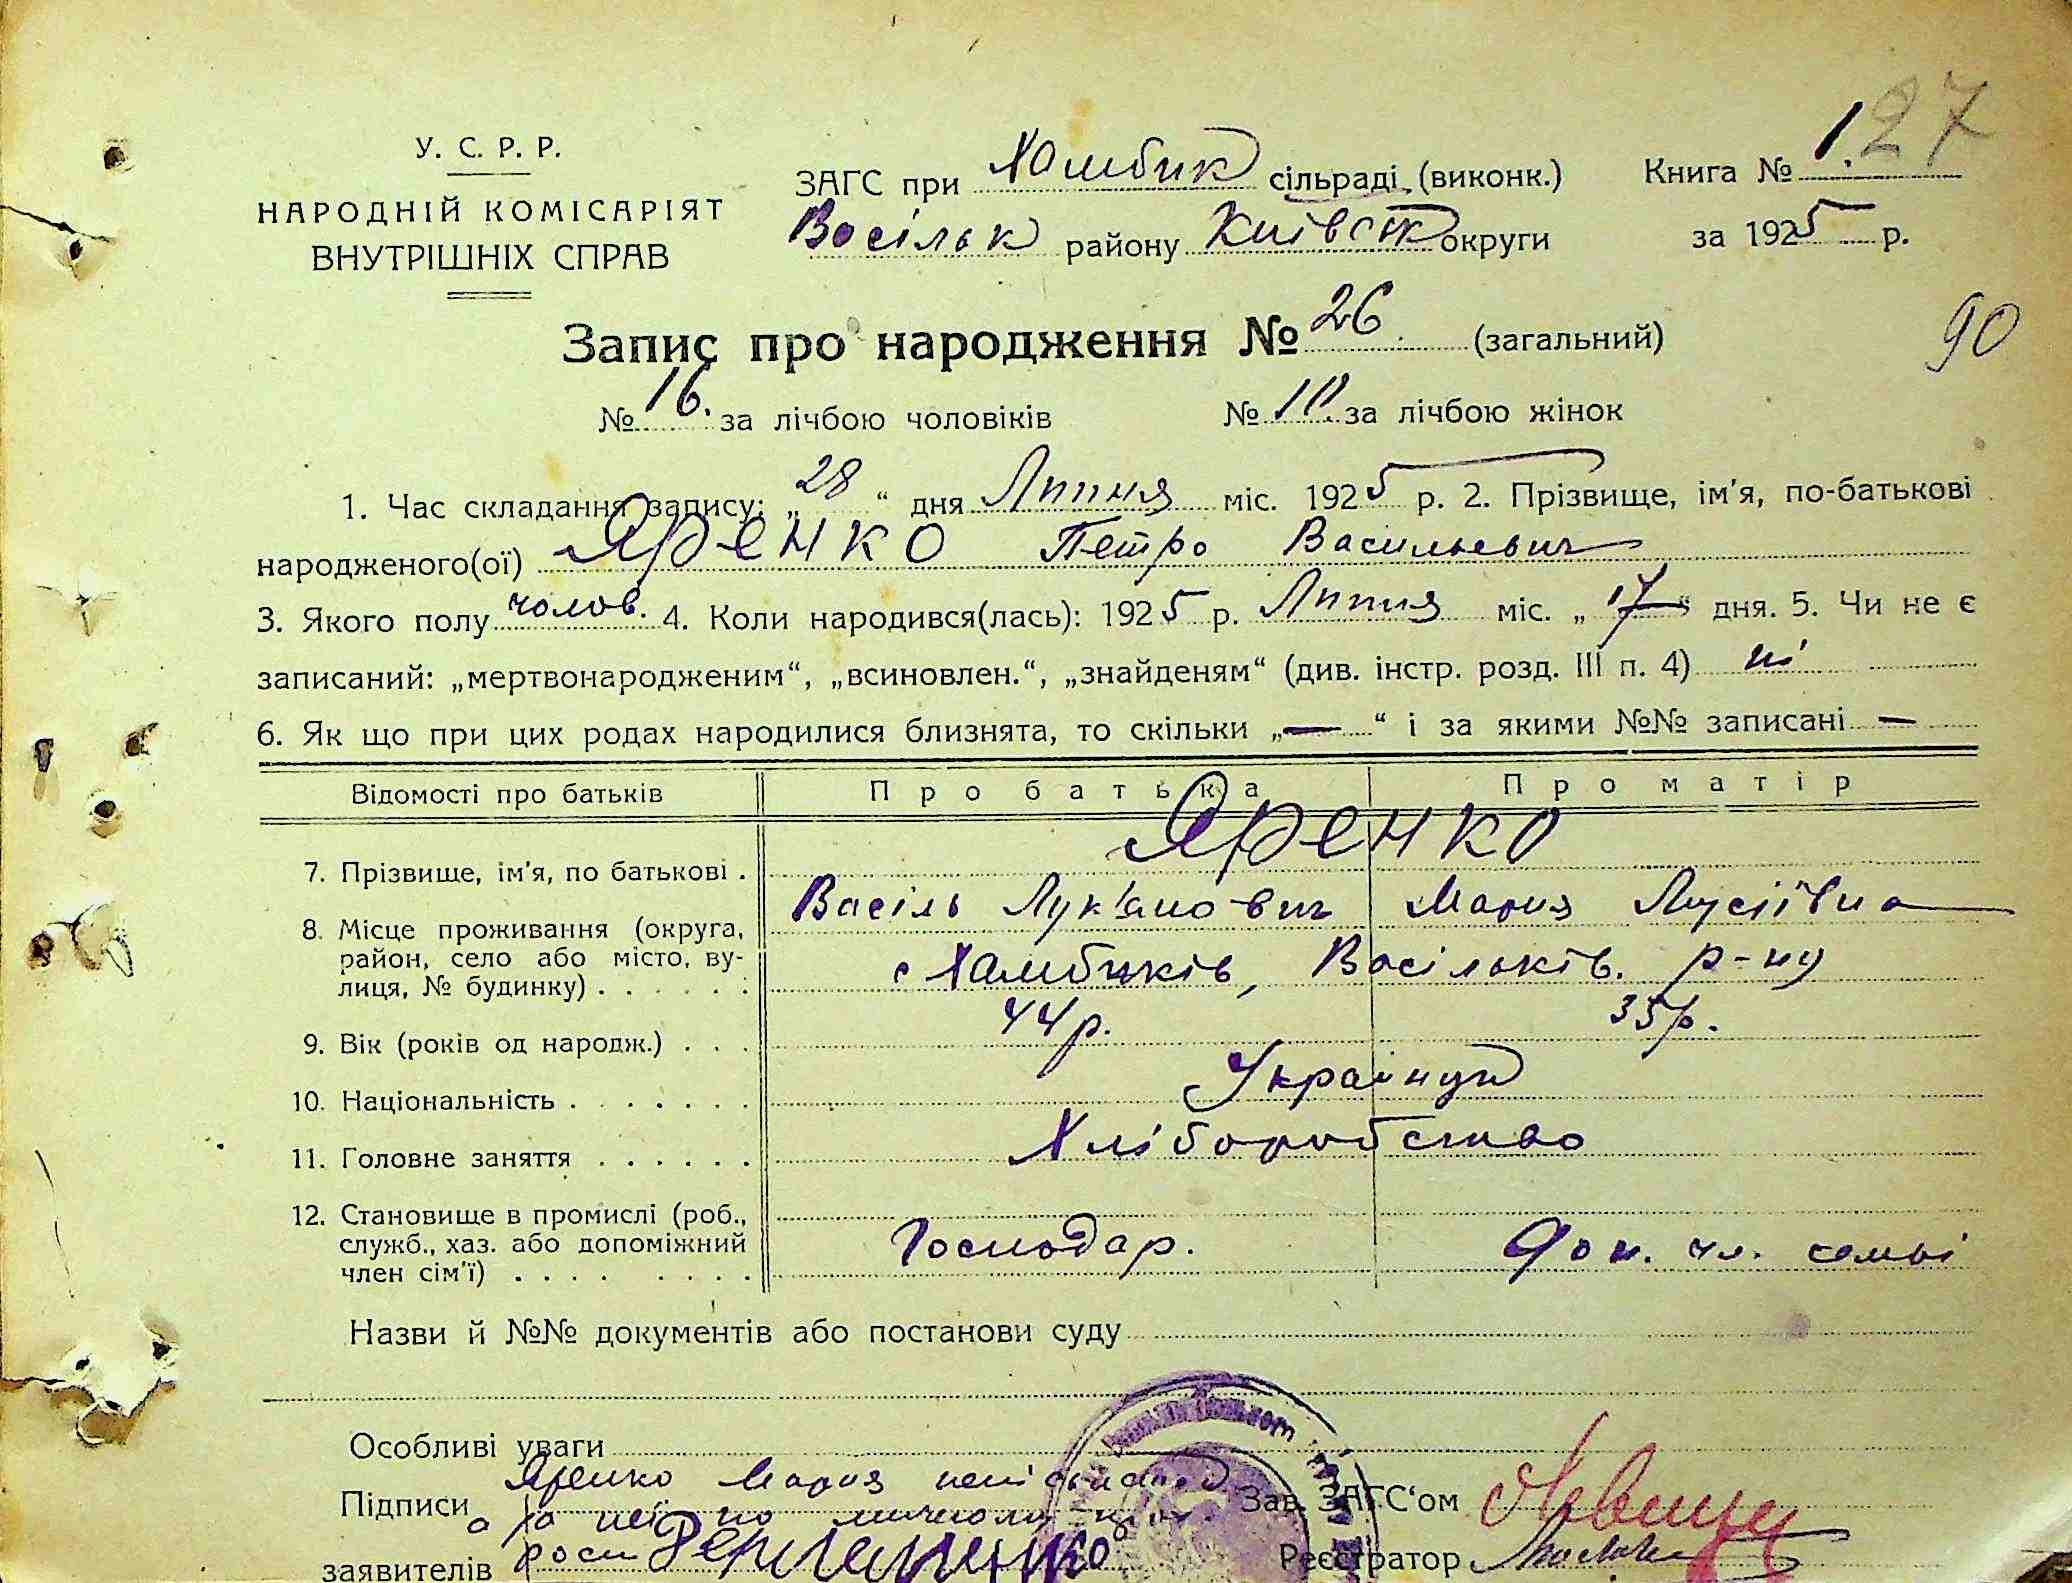 1. 27
У. С. Р. Р.
НАРОДНІЙ КОМІСАРІЯТ
ВНУТРІШНІХ СПРАВ
ЗАГС при Хамбик сільраді, (виконк.)
Васільк району Київськ округи
Книга №
за 1925 р.
90
Запис про народження № 26 (загальний)
№ 16. за лічбою чоловіків № 10. за лічбою жінок
1. Час складання запису: „28“ дня Липня міс. 1925 р. 2. Прізвище, ім'я, по-батькові
народженого(ої) Яренко Петро Васильевич
3. Якого полу чолов. 4. Коли народився(лась): 1925 р. Липня міс. „17“ дня. 5. Чи не є
записаний: „мертвонародженим“, „всиновлен.“, „знайденям“ (див. інстр. розд. III п. 4) ні
6. Як що при цих родах народилися близнята, то скільки „—“ і за якими №№ записані —
Відомості про батьків Про батька Про матір
Яренко
7. Прізвище, ім'я, по батькові .
Васіль Лук'янович Мария
8. Місце проживання (округа,
район, село або місто, ву-
лиця, № будинку) . . . . . .
с Хамбиків, Васільків. р-ну
9. Вік (років од народж.) . . . 44 р. 35 р.
10. Національність . . . . . . . Українці
11. Головне заняття . . . . . . Хліборобство
12. Становище в промислі (роб.,
служб., хаз. або допоміжний
член сім'ї) . . . . . . . .
Господар. Доп. чл. семьі
Назви й №№ документів або постанови суду
Особливі уваги
Підписи Яренко Мария
заявителів
Зав. ЗАГС'ом
Реєстратор